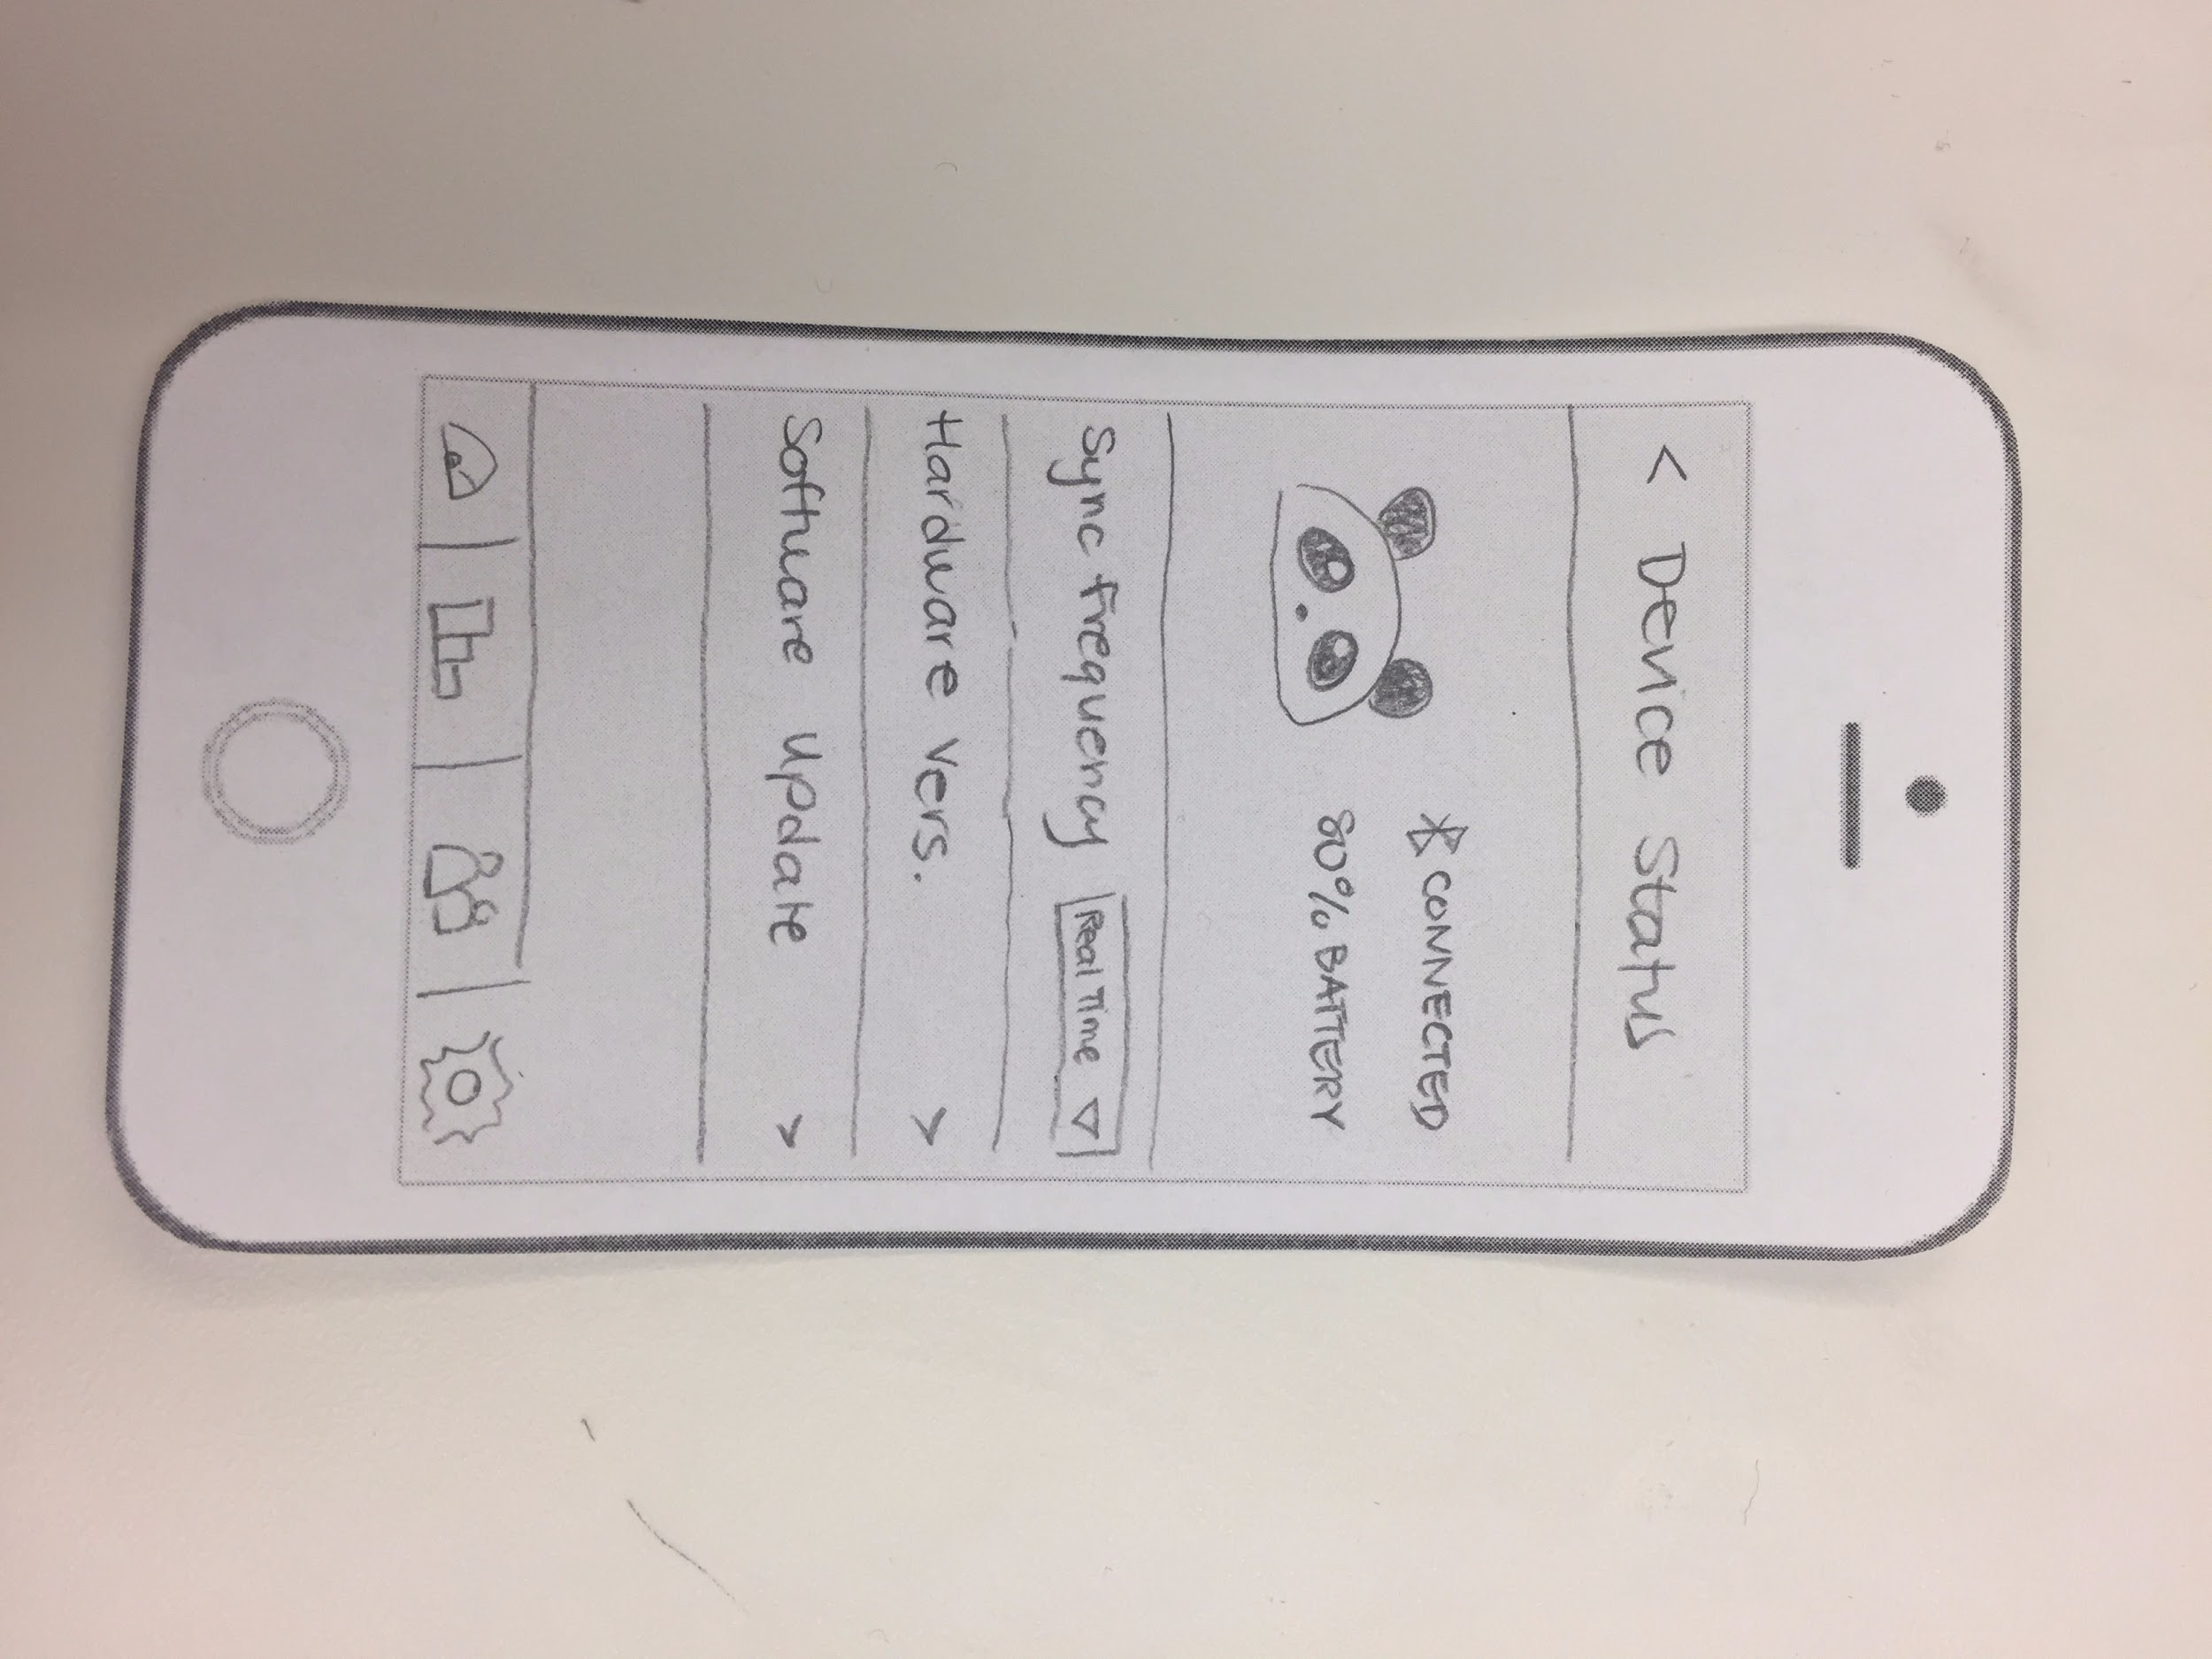 < Device Status
CONNECTED
80% BATTERY
Sync frequency Real Time
Hardware Vers. >
Software Update >